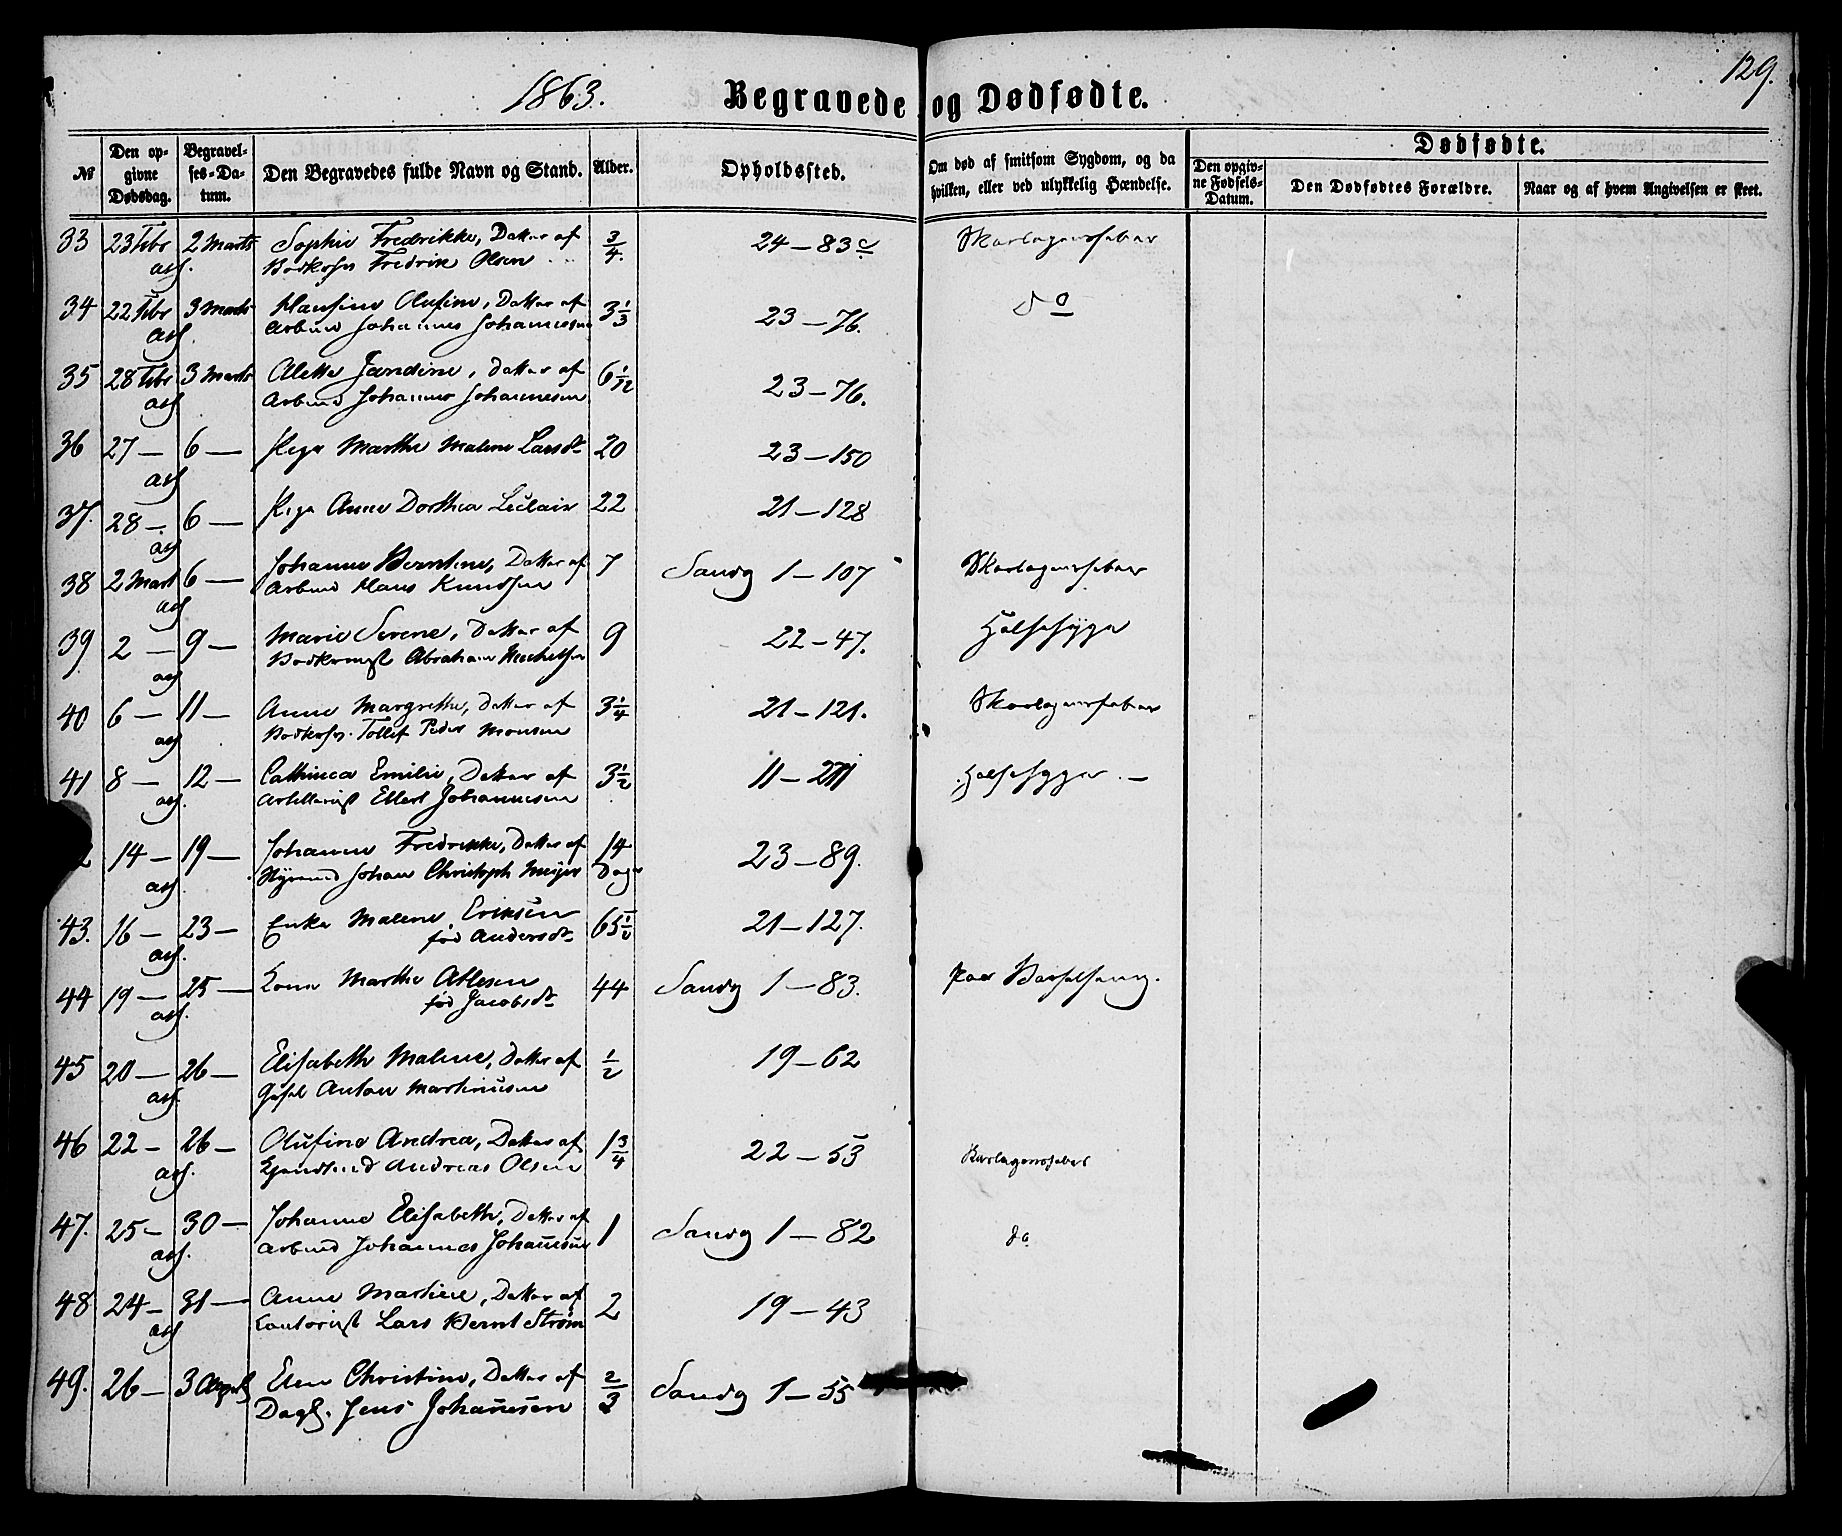 1863. Begravede og Dødfødte. 129.
№ Den opgivne Dødsdag. Begravelses-Datum. Den Begravedes fulde Navn og Stand. Alder. Opholdssted. Om død af smitsom Sygdom, og da hvilken, eller ved ulykkelig Hændelse. Dødfødte. Den opgivne Fødsels-Datum. Den Dødfødtes Forældre. Naar og af hvem Angivelsen er skeet.
33 23 Febr 2 Marts Sophie Fredrikke, Datter af 3/4 24 — 83c Skarlagensfeber
Fredrik Olsen
34 22 Febr 3 Marts Hansine Olufine, Datter af 3 1/3 23 — 76. do
Arbmd Johannes Johannesen
35 28 Febr 3 Marts Alette Jandine, Datter af 6 1/12 23 — 76.
Arbmd Johannes Johannesen
36 27 — 6 — Pige Marthe Malene Larsdr 20 23 — 150
37. 28 — 6 — Pige Anne Dorthea Leclair 22 21 — 128
38 2 Mart 6 — Johanne Berntine, Datter af 7 Sandv 1 — 107 Skarlagensfeber
Arbmd Hans Knudsen
39 2 — 9 — Marie Serene, Datter af 9 22 — 47. Halssyge
Abraham Michelsen
40 6 — 11 — Anne Margrethe, Datter af 3 1/4 21 — 121. Skarlagensfeber
Tollef Peder Monsen
41 8 — 12 — Cathinca Emilie, Datter af 3 1/2 11 — Halssyge. —
Artillerist Ellert Johannesen
14 — 19 — Johanne Fredrikke, Datter af 14 Dage 23 — 89.
Johan Christoph Meijer
43. 16 — 23 — Enke Malene Eriksen 65 1/2 21 — 127.
fød Andersdr
44 19 — 25 — Kone Marthe Atlesen 44 Sandv 1 — 83. paa Barselseng.
fød Jacobsdr
45 20 — 26 — Elisabeth Malene, Datter af 1/2 19 — 62
Anton Martinusen
46 22 — 26 — Olufine Andrea, Datter af 1 3/4 22 — 53 Skarlagensfeber
Andreas Olsen
47. 25 — 30 — Johanne Elisabeth, Datter af 1 Sandv 1 — 82 do
Arbmd Johannes Johannesen
48 24 — 31 — Anne Martine, Datter af 2 19 — 43
Contorist Lars Bernt Strøm
49. 26 — 3 April Elen Christine, Datter af 2/3 Sandv 1 — 55
Dagl. Jens Johannesen